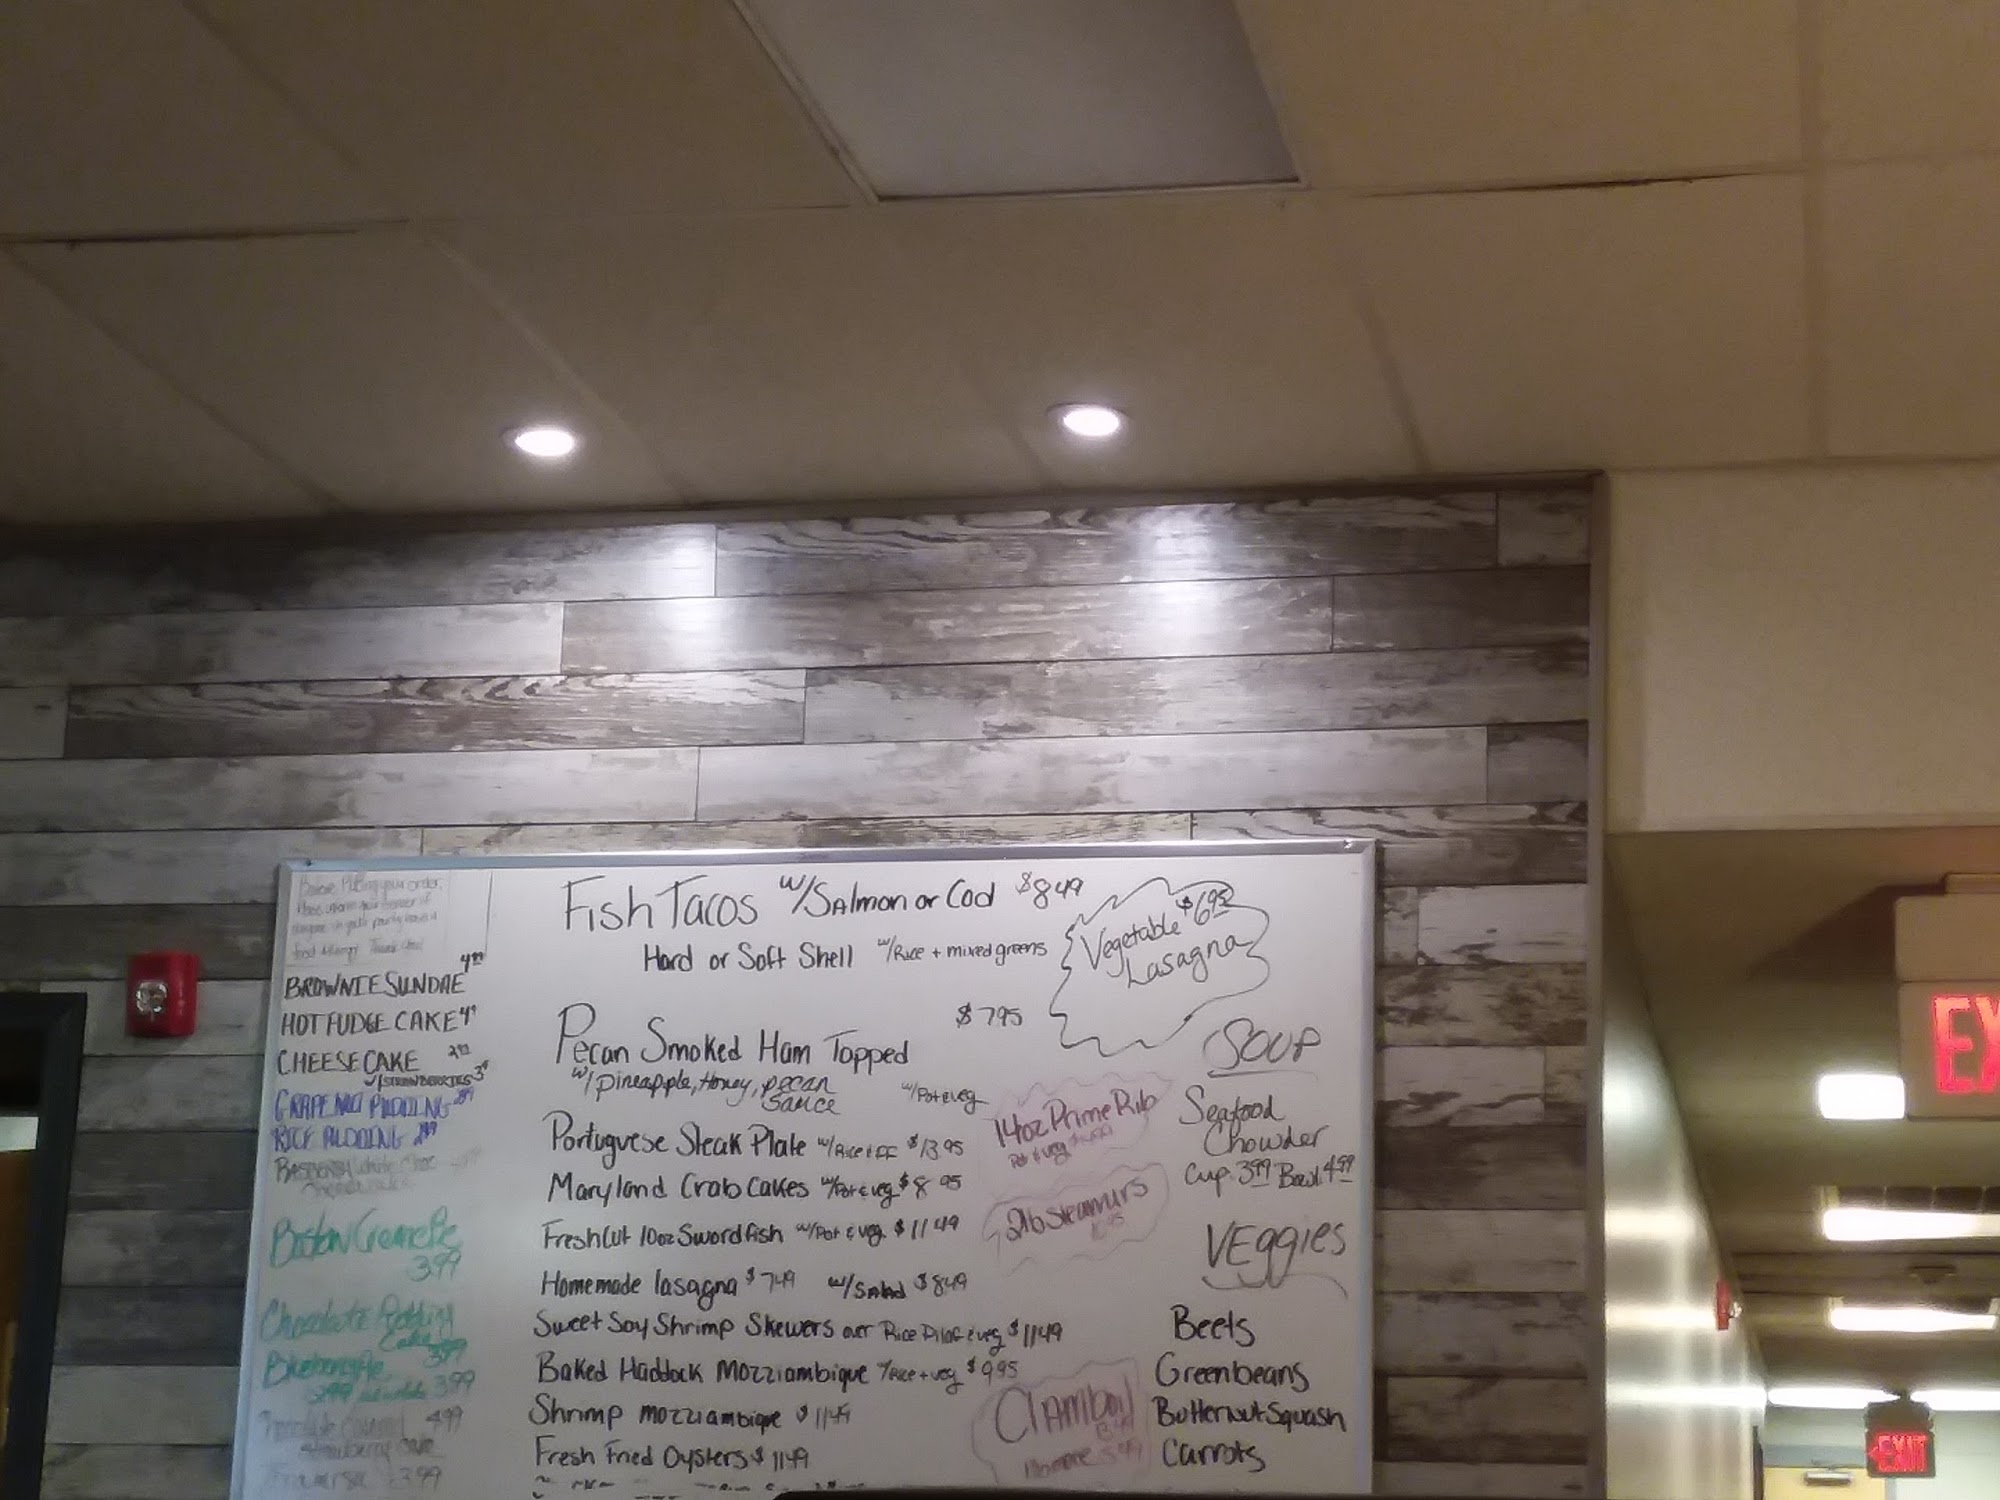 Before Placing your order,
Please inform your server if
anyone in your party has a
food Allergy Thank you!
BROWNIE SUNDAE 4 99
HOT FUDGE CAKE 4 99
CHEESE CAKE 2 99
w/STRAWBERRIES 3 99
GRAPENUT PUDDING 2 99
RICE PUDDING 2 99
Boston Creme Pie
3.99
Chocolate Pudding
Cake 3.99
Blueberry Pie
3.99
Chocolate Covered 4.99
Strawberry Cake
Tiramisu 3.99
FISH TACOS w/Salmon or Cod $8.49
Hard or Soft Shell w/Rice + mixed greens
Vegetable $6.95
Lasagna
$7.95
Pecan Smoked Ham Topped
w/pineapple, Honey, pecan
Sauce w/Pot & veg
Portuguese Steak Plate w/Rice & FF $13.95
Maryland Crab Cakes w/Pot & veg $8.95
Fresh Cut 10oz Swordfish w/Pot & veg $11.49
Homemade lasagna $7.49 w/Salad $8.49
Sweet Soy Shrimp Skewers over Rice Pilaf & veg $11.49
Baked Haddock Mozziambique w/Rice + veg $9.95
Shrimp mozziambique $11.49
Fresh Fried Oysters $11.49
14oz Prime Rib
Pot & veg
2lb Steamers
Clamboil
SOUP
Seafood
Chowder
Cup 3.99 Bowl 4.99
VEggies
Beets
Greenbeans
Butternut Squash
Carrots
EX
EXIT